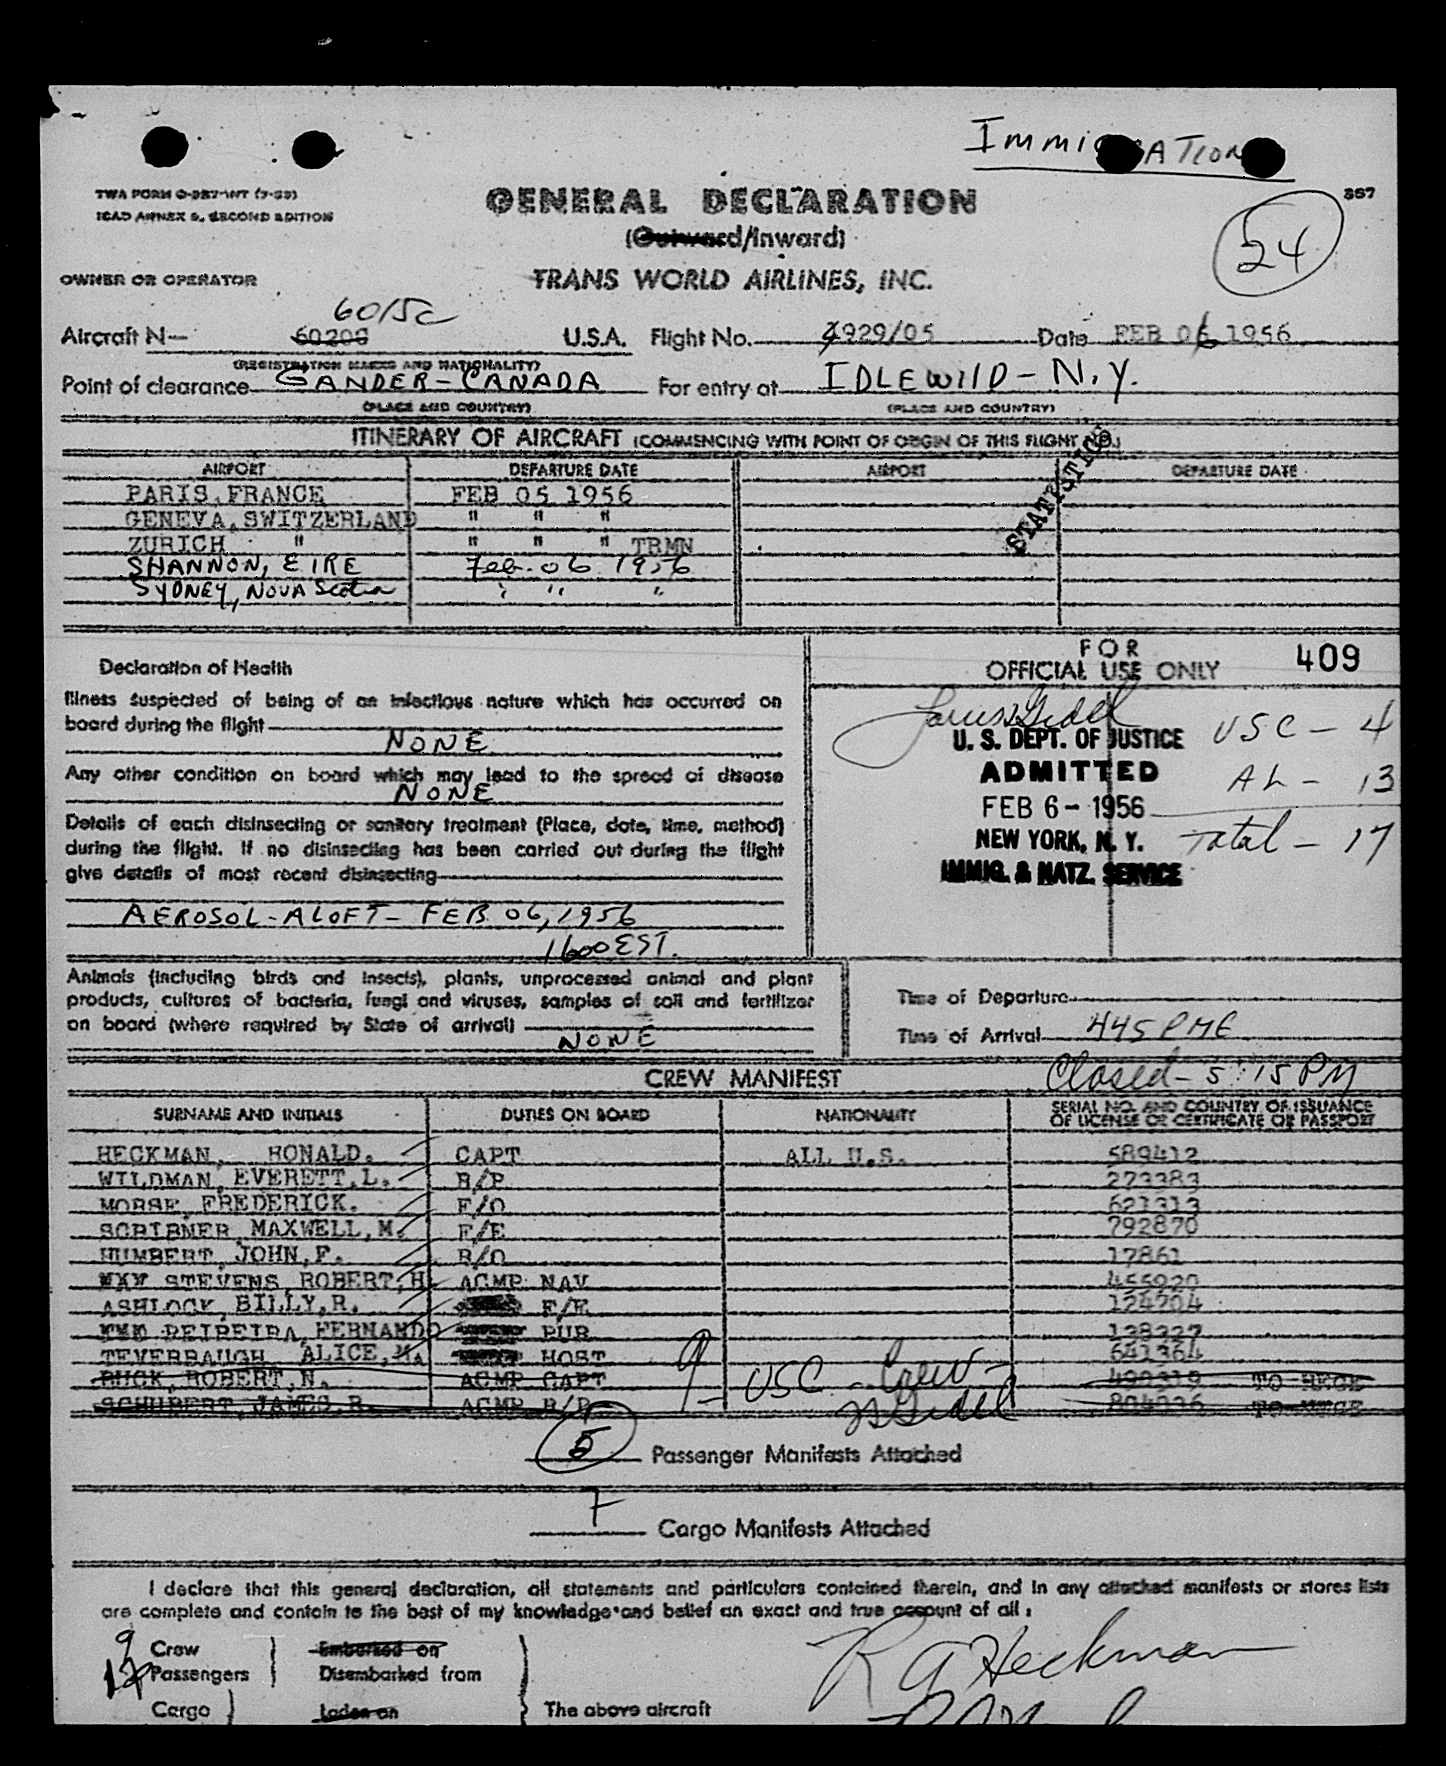 IMMIGRATION
TWA FORM O-987-INT (7-53)
ICAO ANNEX 9, SECOND EDITION
GENERAL DECLARATION
357
(Outward/Inward)
24
OWNER OR OPERATOR
TRANS WORLD AIRLINES, INC.
6015C
Aircraft N— 60208 U.S.A. Flight No. 929/05 Date FEB 06 1956
(REGISTRATION MARKS AND NATIONALITY)
Point of clearance GANDER-CANADA For entry at IDLEWILD-N.Y.
(PLACE AND COUNTRY) (PLACE AND COUNTRY)
ITINERARY OF AIRCRAFT (COMMENCING WITH POINT OF ORIGIN OF THIS FLIGHT NO.)
STATISTICS
AIRPORT DEPARTURE DATE AIRPORT DEPARTURE DATE
PARIS,FRANCE FEB 05 1956
GENEVA,SWITZERLAND " " "
ZURICH " " " " TRMN
SHANNON, EIRE Feb. 06 1956
SYDNEY, NOVA Scotia " " "
FOR
OFFICIAL USE ONLY 409
Declaration of Health
Illness suspected of being of an infectious nature which has occurred on
board during the flight
NONE
Any other condition on board which may lead to the spread of disease
NONE
Details of each disinsecting or sanitary treatment (Place, date, time, method)
during the flight. If no disinsecting has been carried out during the flight
give details of most recent disinsecting
AEROSOL-ALOFT-FEB 06, 1956
1600EST.
U. S. DEPT. OF JUSTICE
ADMITTED
FEB 6- 1956
NEW YORK, N. Y.
IMMIG. & NATZ. SERVICE
USC - 4
AL - 13
Total - 17
Animals (including birds and insects), plants, unprocessed animal and plant
products, cultures of bacteria, fungi and viruses, samples of soil and fertilizer
on board (where required by State of arrival)
NONE
Time of Departure
Time of Arrival 445 PME
Closed - 5:15 PM
CREW MANIFEST
SURNAME AND INITIALS DUTIES ON BOARD NATIONALITY SERIAL NO. AND COUNTRY OF ISSUANCE
OF LICENSE OR CERTIFICATE OR PASSPORT
HECKMAN, RONALD. CAPT ALL U.S. 589412
WILDMAN,EVERETT,L. R/P 273383
MORSE,FREDERICK. F/O 621313
SCRIBNER,MAXWELL,M. F/E 792870
HUMBERT,JOHN,F. R/O 17861
STEVENS ROBERT,H ACMP NAV 455920
ASHLOCK,BILLY,R. F/E 124704
FERNANDO PUR 138327
TEVERBAUGH ALICE,M. HOST 641364
BUCK,ROBERT,N. ACMP CAPT 490319
SCHUBERT,JAMES,R. ACMP R/P 804036
9 - USC - Crew -
5 Passenger Manifests Attached
7 Cargo Manifests Attached
I declare that this general declaration, all statements and particulars contained therein, and in any attached manifests or stores lists
are complete and contain to the best of my knowledge and belief an exact and true account of all:
9 Crew Embarked on
17 Passengers Disembarked from
Cargo Laden on The above aircraft
R A Heckman